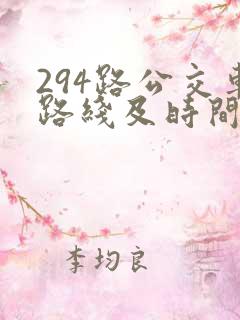 294路公交車
路綫及時間
李均良